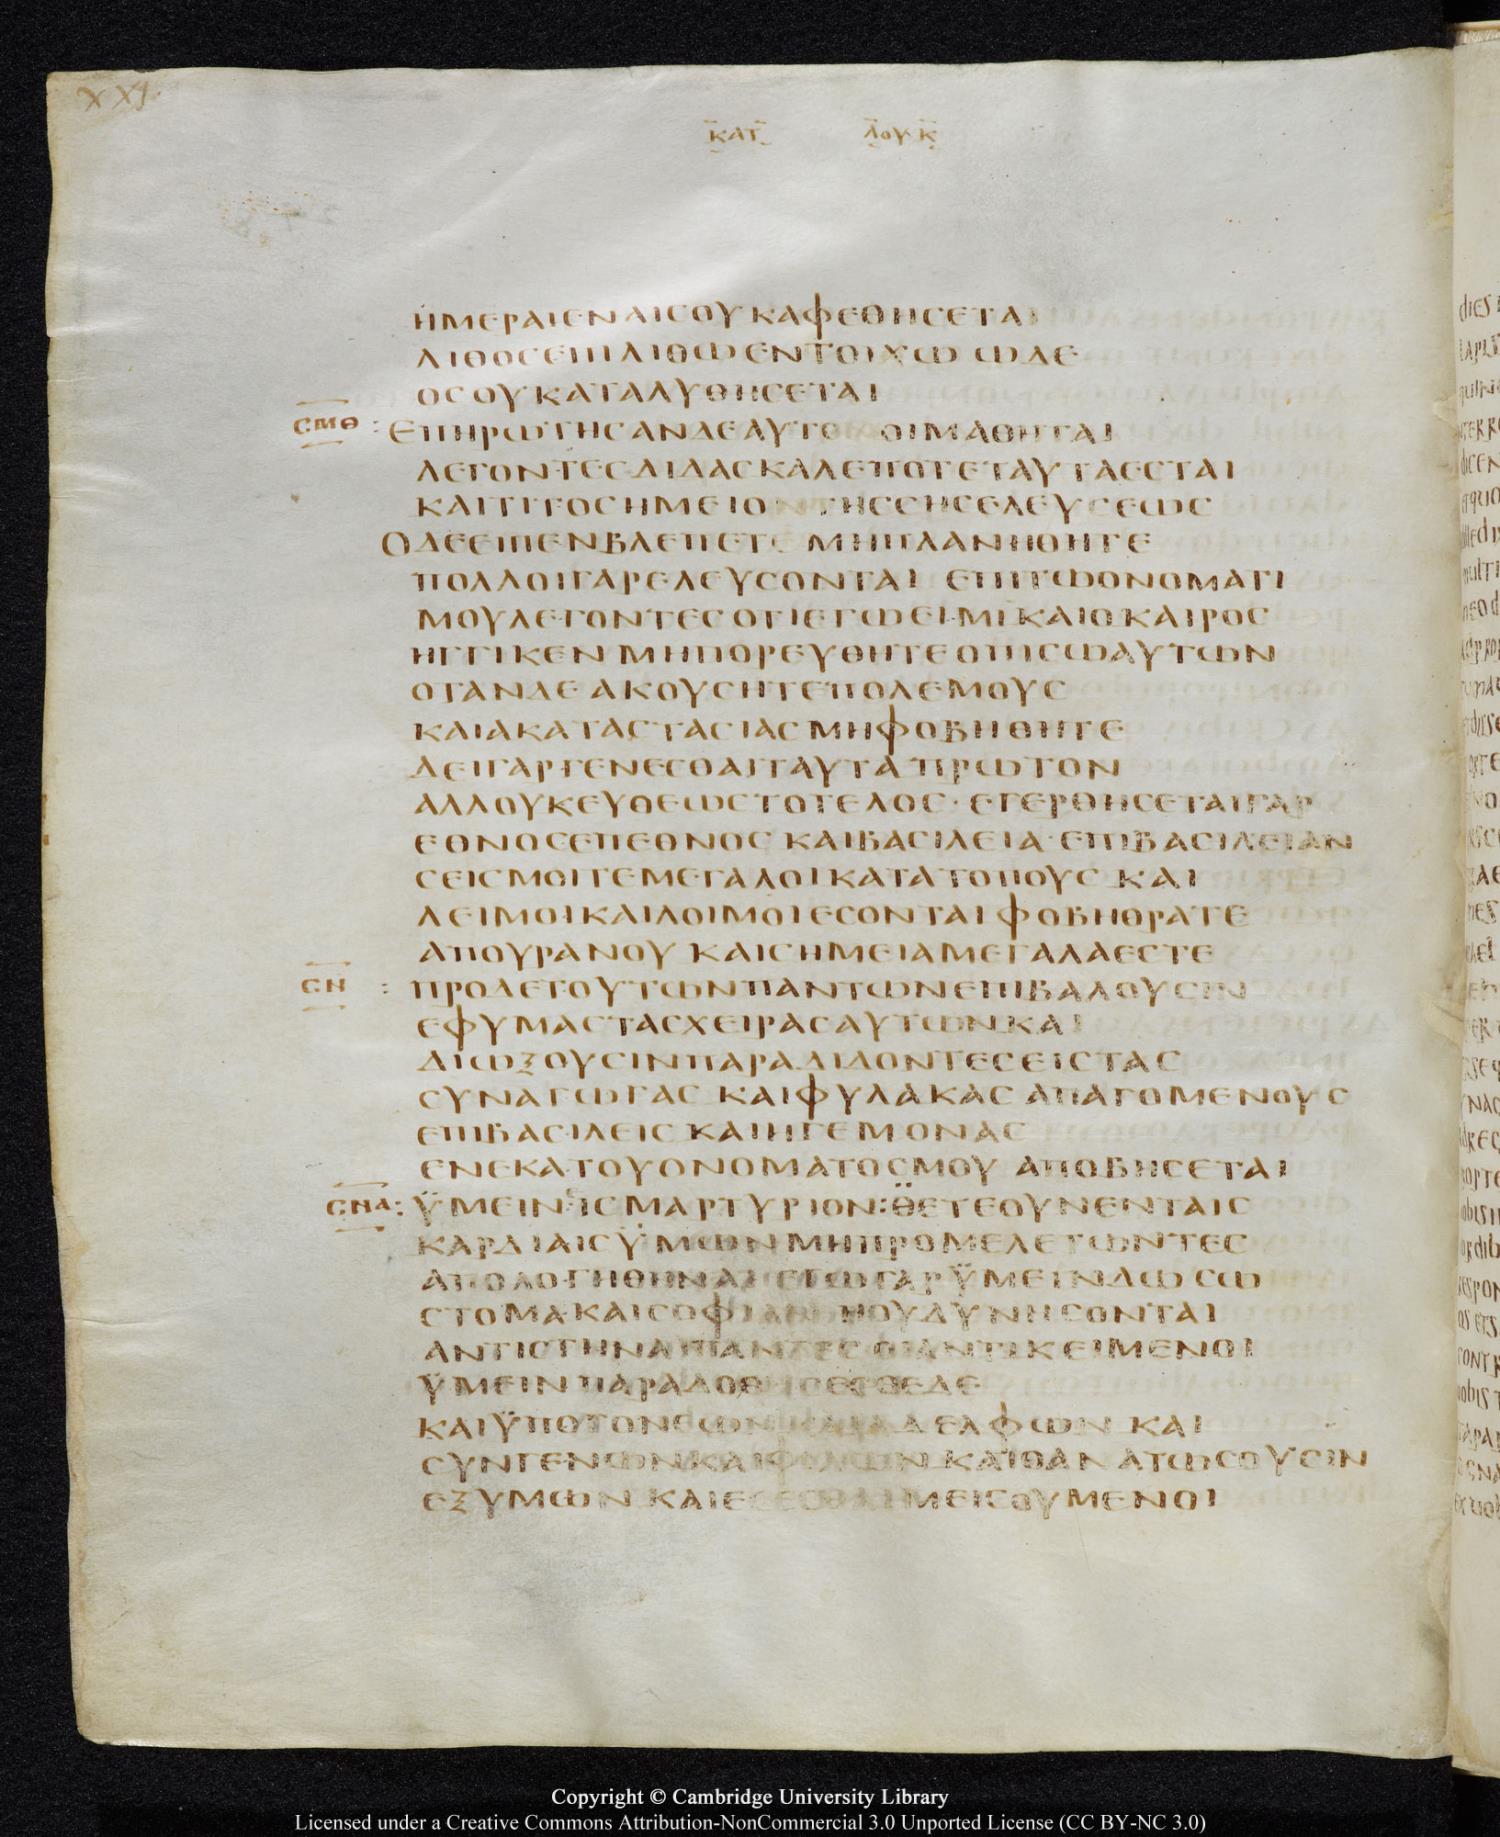 XXI
ΚΑΤ ΛΟΥΚ
ΗΜΕΡΑΙΕΝΑΙΣΟΥΚΑΦΕΘΗΣΕΤΑΙ
ΛΙΘΟΣΕΠΙΛΙΘΩΕΝΤΟΙΧΩ ΩΔΕ
ΟΣΟΥΚΑΤΑΛΥΘΗΣΕΤΑΙ
ΣΜΘ : ΕΠΗΡΩΤΗΣΑΝΔΕΑΥΤΟ ΟΙΜΑΘΗΤΑΙ
ΛΕΓΟΝΤΕΣΔΙΔΑΣΚΑΛΕΠΟΤΕΤΑΥΤΑΕΣΤΑΙ
ΚΑΙΤΙΤΟΣΗΜΕΙΟ ΤΗΣΣΗΣΕΛΕΥΣΕΩΣ
ΟΔΕΕΙΠΕΝΒΛΕΠΕΤΕ ΜΗΠΛΑΝΗΘΗΤΕ
ΠΟΛΛΟΙΓΑΡΕΛΕΥΣΟΝΤΑΙ ΕΠΙΤΩΟΝΟΜΑΤΙ
ΜΟΥΛΕΓΟΝΤΕΣΟΤΙΕΓΩΕΙΜΙ ΚΑΙΟΚΑΙΡΟΣ
ΗΓΓΙΚΕΝ ΜΗΠΟΡΕΥΘΗΤΕΟΠΙΣΩΑΥΤΩΝ
ΟΤΑΝΔΕ ΑΚΟΥΣΗΤΕΠΟΛΕΜΟΥΣ
ΚΑΙΑΚΑΤΑΣΤΑΣΙΑΣ ΜΗΦΟΒΗΘΗΤΕ
ΔΕΙΓΑΡΓΕΝΕΣΘΑΙΤΑΥΤΑ ΠΡΩΤΟΝ
ΑΛΛΟΥΚΕΥΘΕΩΣΤΟΤΕΛΟΣ · ΕΓΕΡΘΗΣΕΤΑΙΓΑΡ
ΕΘΝΟΣΕΠΕΘΝΟΣ ΚΑΙΒΑΣΙΛΕΙΑ ΕΠΙΒΑΣΙΛΕΙΑΝ
ΣΕΙΣΜΟΙΤΕΜΕΓΑΛΟΙΚΑΤΑΤΟΠΟΥΣ ΚΑΙ
ΛΕΙΜΟΙΚΑΙΛΟΙΜΟΙΕΣΟΝΤΑΙ ΦΟΒΗΘΡΑΤΕ
ΑΠΟΥΡΑΝΟΥ ΚΑΙΣΗΜΕΙΑΜΕΓΑΛΑΕΣΤΕ
ΣΝ : ΠΡΟΔΕΤΟΥΤΩΝΠΑΝΤΩΝΕΠΙΒΑΛΟΥΣΙΝ
ΕΦΥΜΑΣΤΑΣΧΕΙΡΑΣΑΥΤΩΝΚΑΙ
ΔΙΩΞΟΥΣΙΝΠΑΡΑΔΙΔΟΝΤΕΣΕΙΣΤΑΣ
ΣΥΝΑΓΩΓΑΣ ΚΑΙΦΥΛΑΚΑΣ ΑΠΑΓΟΜΕΝΟΥΣ
ΕΠΙΒΑΣΙΛΕΙΣ ΚΑΙΗΓΕΜΟΝΑΣ
ΕΝΕΚΑΤΟΥΟΝΟΜΑΤΟΣΜΟΥ ΑΠΟΒΗΣΕΤΑΙ
ΣΝΑ : ΫΜΕΙΝΕΙΣΜΑΡΤΥΡΙΟΝ:ΘΕΤΕΟΥΝΕΝΤΑΙΣ
ΚΑΡΔΙΑΙΣΫΜΩΝΜΗΠΡΟΜΕΛΕΤΩΝΤΕΣ
ΑΠΟΛΟΓΗΘΗΝΑΙ ΕΓΩΓΑΡΫΜΕΙΝΔΩΣΩ
ΣΤΟΜΑΚΑΙΣΟΦΙΑΝ ΗΟΥΔΥΝΗΣΟΝΤΑΙ
ΑΝΤΙΣΤΗΝΑΙΠΑΝΤΕΣ ΟΙΑΝΤΙΚΕΙΜΕΝΟΙ
ΫΜΕΙΝ ΠΑΡΑΔΟΘΗΣΕΣΘΕΔΕ
ΚΑΙΫΠΟΓΟΝΕΩΝ ΚΑΙΑΔΕΛΦΩΝ ΚΑΙ
ΣΥΝΓΕΝΩΝΚΑΙΦΙΛΩΝ ΚΑΙΘΑΝΑΤΩΣΟΥΣΙΝ
ΕΞΥΜΩΝ ΚΑΙΕΣΕΣΘΑΙΜΕΙΣΟΥΜΕΝΟΙ
Copyright © Cambridge University Library
Licensed under a Creative Commons Attribution-NonCommercial 3.0 Unported License (CC BY-NC 3.0)